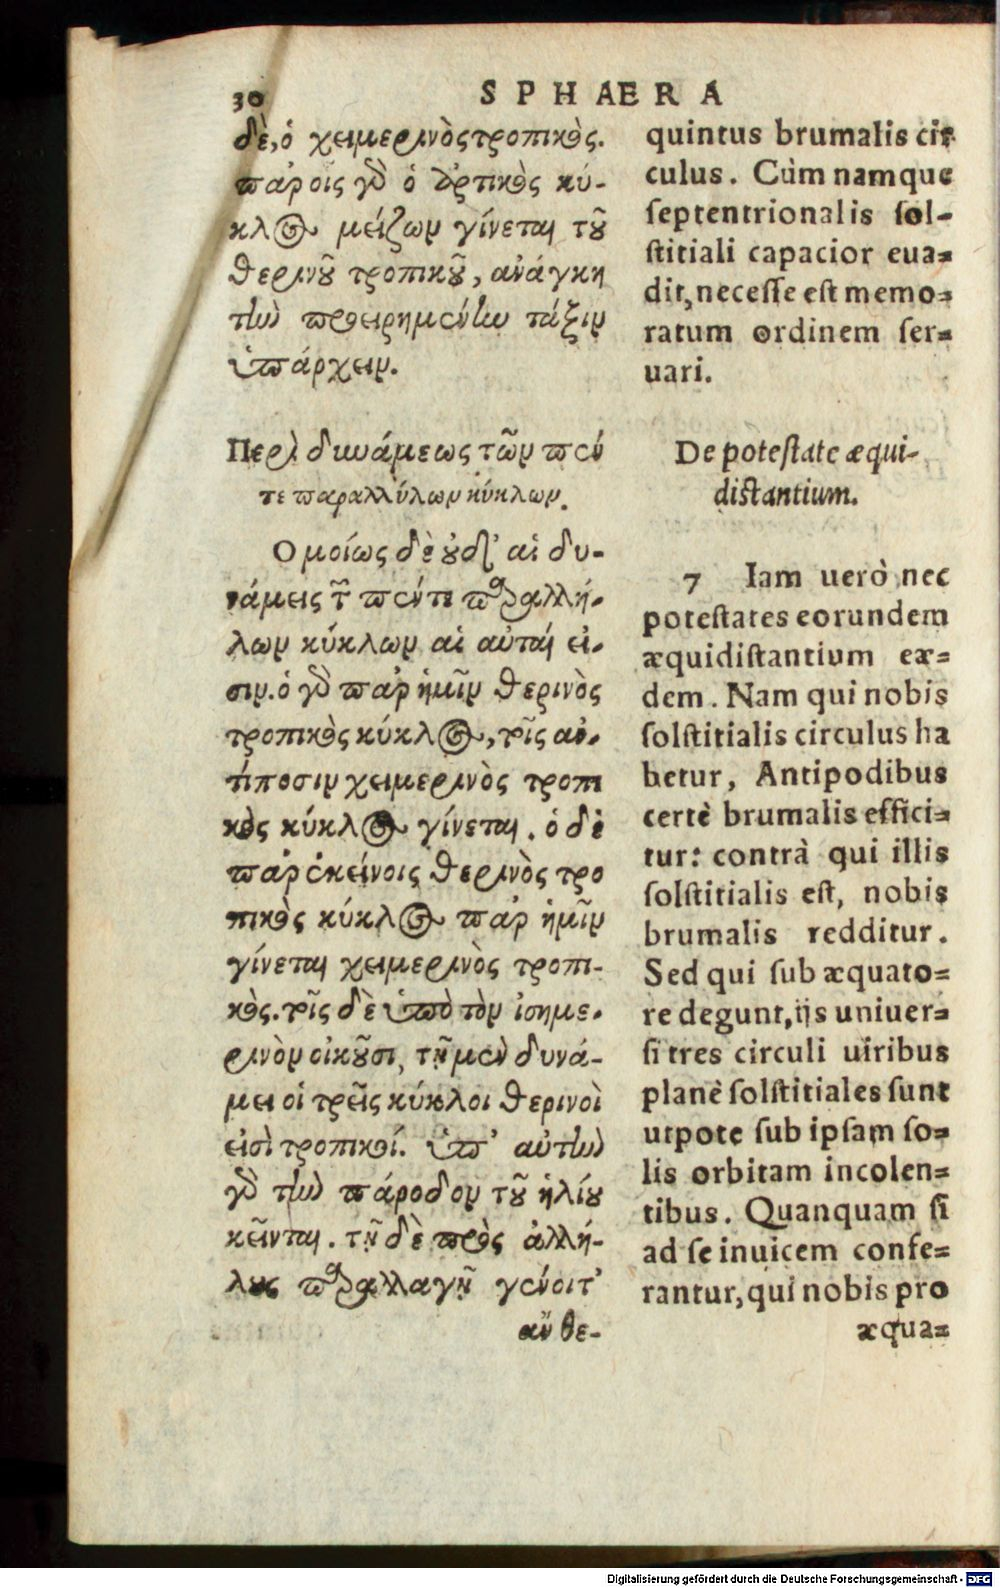 30
SPHAERA
δὲ, ὁ χειμερινὸς τροπικὸς.
παρ οἷς γὰρ ὁ ἀρκτικὸς κύ-
κλος μείζων γίνεται τοῦ
θερινοῦ τροπικοῦ, ἀνάγκη
τὴν προειρημένην τάξιν
ὑπάρχειν.
Περὶ δυνάμεως τῶν πέν
τε παραλλήλων κύκλων.
Ομοίως δὲ οὐδ' αἱ δυ-
νάμεις τῶν πέντε παραλλή-
λων κύκλων αἱ αὐταί εἰ-
σιν. ὁ γὰρ παρ ἡμῖν θερινὸς
τροπικὸς κύκλος, τοῖς ἀν-
τίποσιν χειμερινὸς τροπι
κὸς κύκλος γίνεται. ὁ δὲ
παρ ἐκείνοις θερινὸς τρο
πικὸς κύκλος παρ ἡμῖν
γίνεται χειμερινὸς τροπι-
κὸς. τοῖς δὲ ὑπὸ τὸν ἰσημε-
ρινὸν οἰκοῦσι, τῇ μὲν δυνά-
μει οἱ τρεῖς κύκλοι θερινοὶ
εἰσὶ τροπικοί. ὑπ' αὐτὴν
γὰρ τὴν πάροδον τοῦ ἡλίου
κεῖνται. τῇ δὲ πρὸς ἀλλή-
λους παραλλαγῇ γένοιτ'
ἂν θε-
quintus brumalis cir
culus. Cùm namque
septentrionalis sol-
stitiali capacior eua-
dit, necesse est memo-
ratum ordinem ser-
uari.
De potestate æqui-
distantium.
7 Iam uerò nec
potestates eorundem
æquidistantium eæ-
dem. Nam qui nobis
solstitialis circulus ha
betur, Antipodibus
certè brumalis effici-
tur: contrà qui illis
solstitialis est, nobis
brumalis redditur.
Sed qui sub æquato-
re degunt, ijs uniuer-
si tres circuli uiribus
planè solstitiales sunt
utpote sub ipsam so-
lis orbitam incolen-
tibus. Quanquam si
ad se inuicem confe-
rantur, qui nobis pro
æqua-
Digitalisierung gefördert durch die Deutsche Forschungsgemeinschaft - DFG